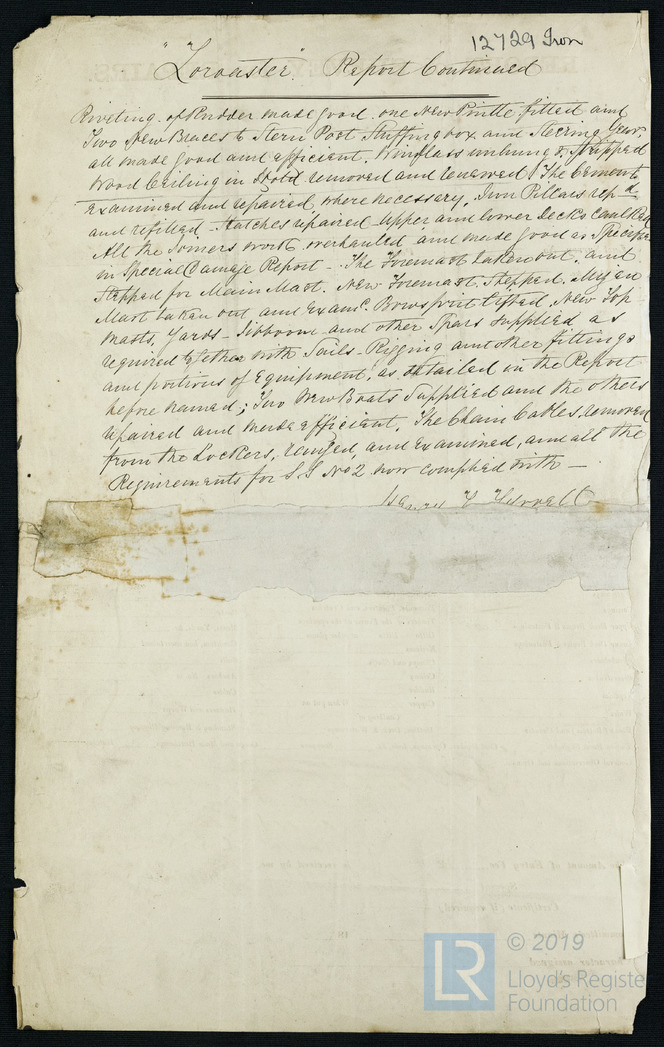 12729 Iron
"Zoroaster" Report Continued
Riveting of Rudder made good. one New Pintle fitted and
Two New Braces to Stern Post, Stuffing box and Steering Gear,
all made good and efficient. Windlass unhung & Stripped
Wood Ceiling in Hold removed and renewed. The Cement
Examined and repaired where necessary. Iron Pillars repd
and refitted. Hatches repaired Upper and lower Decks Caulked
All the Joiners work overhauled and made good as Specified
in Special Damage Report - The Foremast taken out, and
Stepped for Main Mast. New Foremast Stepped. Mizen
Mast taken out and Examd. Bowsprit lifted, New Top
masts, Yards - Jibboom and other Spars supplied as
required together with Sails - Rigging and other fittings
and portions of Equipment, as detailed in the Report
before named; Two New Boats Supplied and the others
repaired and made efficient. The Chain Cables, removed
from the Lockers, ranged, and Examined, and all the
Requirements for S.S No 2 now complied with -
LR
© 2019
Lloyd's Register
Foundation